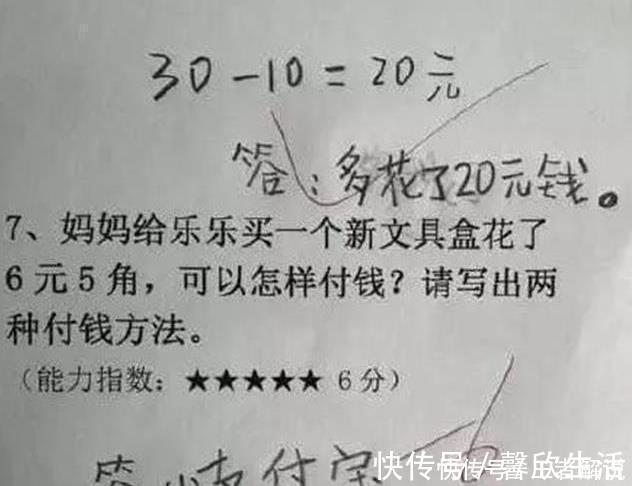 30-10=20元
答：多花了20元钱。
7、妈妈给乐乐买一个新文具盒花了
6元5角，可以怎样付钱？请写出两
种付钱方法。
（能力指数：★★★★★ 6分）
答 支付宝
快传号／馨欣生活